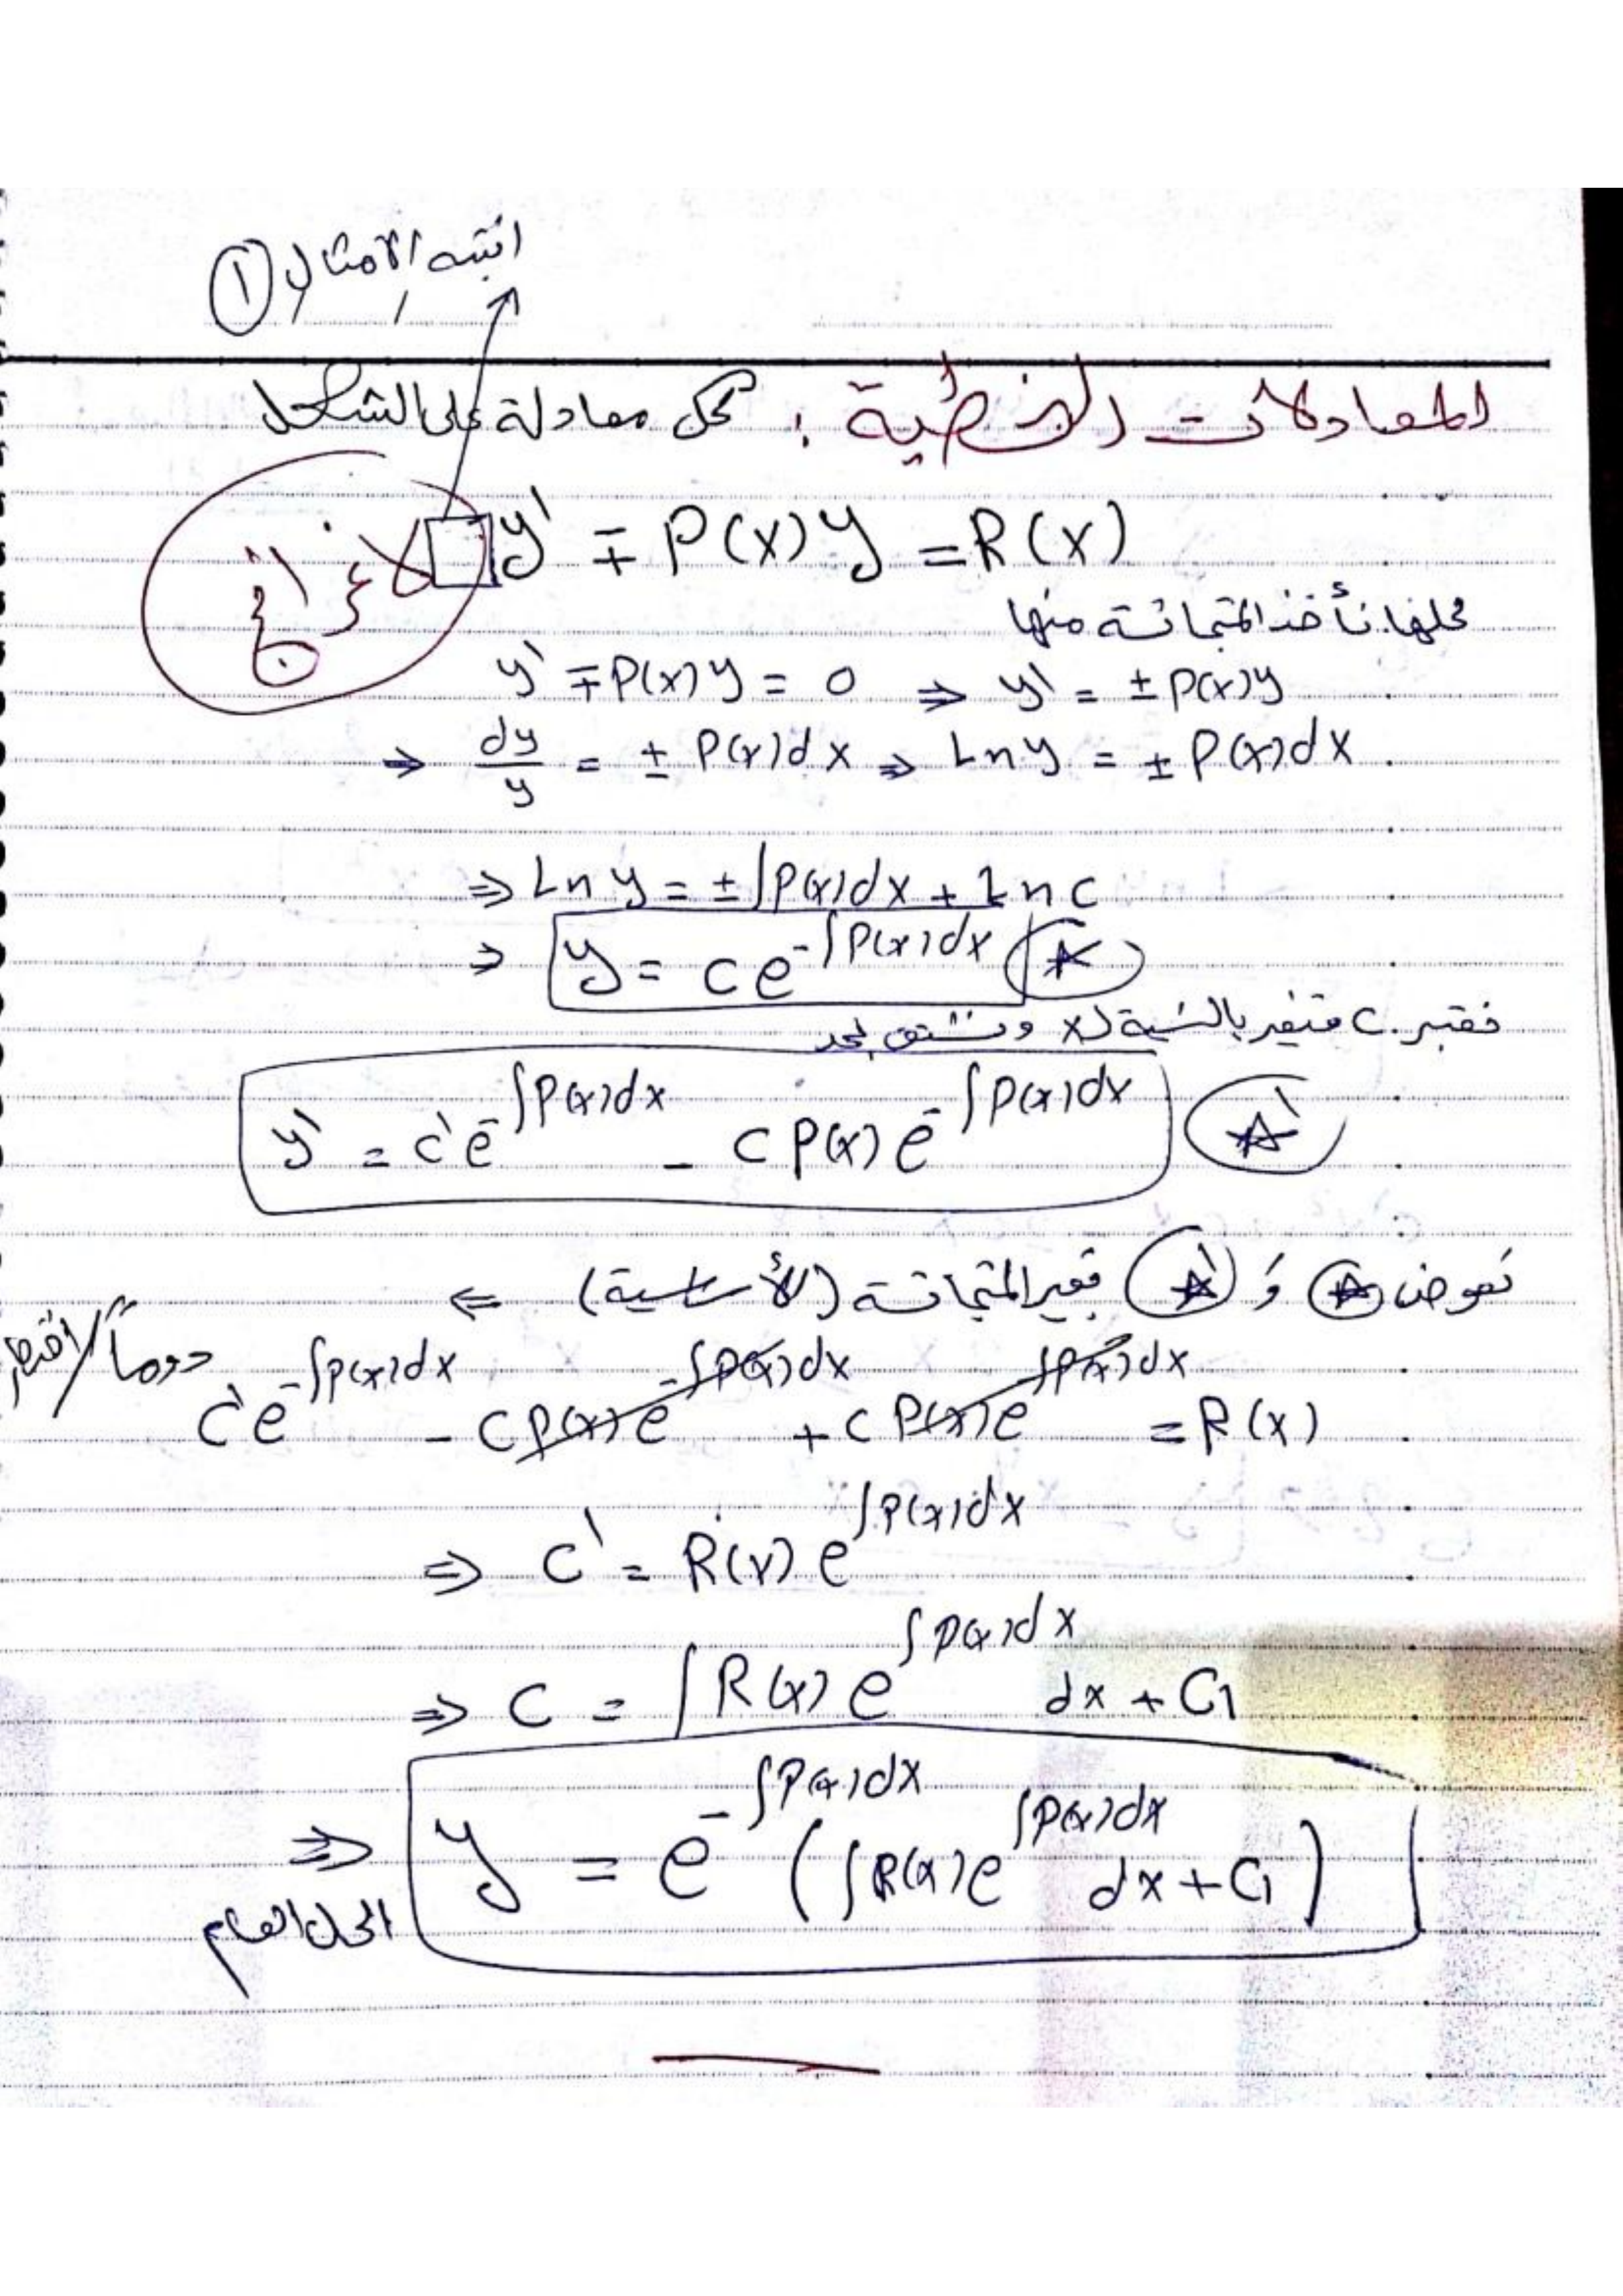 انتبه الأمثال ①
المعادلات الخطية : كل معادلة على الشكل
y' ∓ P(x)y = R(x)
لاغرانج
لحلها نأخذ المتجانسة منها
y' ∓ P(x)y = 0 ⇒ y' = ± P(x)y
⇒ dy/y = ± P(x)dx ⇒ Ln y = ± P(x)dx
⇒ Ln y = ± ∫P(x)dx + Ln c
⇒ y = c e^{-∫P(x)dx} ☆
نعتبر c متغير بالنسبة لـ x ونشتق نجد
y' = c' e^{-∫P(x)dx} - c P(x) e^{-∫P(x)dx} ☆'
نعوض ☆ و ☆' بغير المتجانسة (الأساسية) ⇐
دوماً
c' e^{-∫P(x)dx} - c P(x) e^{-∫P(x)dx} + c P(x) e^{-∫P(x)dx} = R(x)
⇒ c' = R(x) e^{∫P(x)dx}
⇒ C = ∫R(x) e^{∫P(x)dx} dx + C1
⇒ y = e^{-∫P(x)dx} (∫R(x)e^{∫P(x)dx} dx + C1)
الحل العام